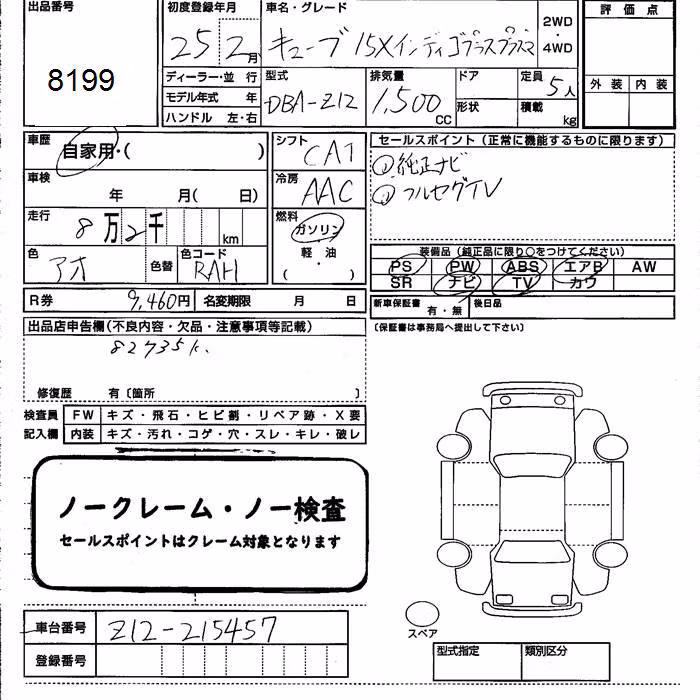 出品番号
8199
初度登録年月
25 2月
車名・グレード
キューブ 15Xインディゴプラスプラズマ
2WD
・
4WD
評価点
外装 内装
ディーラー・並 行
モデル年式 年
ハンドル 左・右
型式
DBA-Z12
排気量
1,500
CC
ドア
形状
定員
5人
積載
kg
車歴
自家用・( )
車検
年 月( 日)
走行
8万2千
km
色
アオ
色替
色コード
RAH
シフト
CAT
冷房
AAC
燃料
ガソリン
軽・油
( )
セールスポイント (正常に機能するものに限ります)
①純正ナビ
②フルセグTV
装備品 (純正品に限り○をつけてください)
PS PW ABS エアB AW
SR ナビ TV カワ
R券 9,460円 名変期限 月 日
新車保証書 有・無 後日品
(保証書は事務局へ提出して下さい)
出品店申告欄(不良内容・欠品・注意事項等記載)
82735k.
修復歴 有〔箇所 〕
検査員 FW キズ・飛石・ヒビ割・リペア跡・X要
記入欄 内装 キズ・汚れ・コゲ・穴・スレ・キレ・破レ
ノークレーム・ノー検査
セールスポイントはクレーム対象となります
車台番号 Z12-215457
登録番号
スペア
型式指定 類別区分